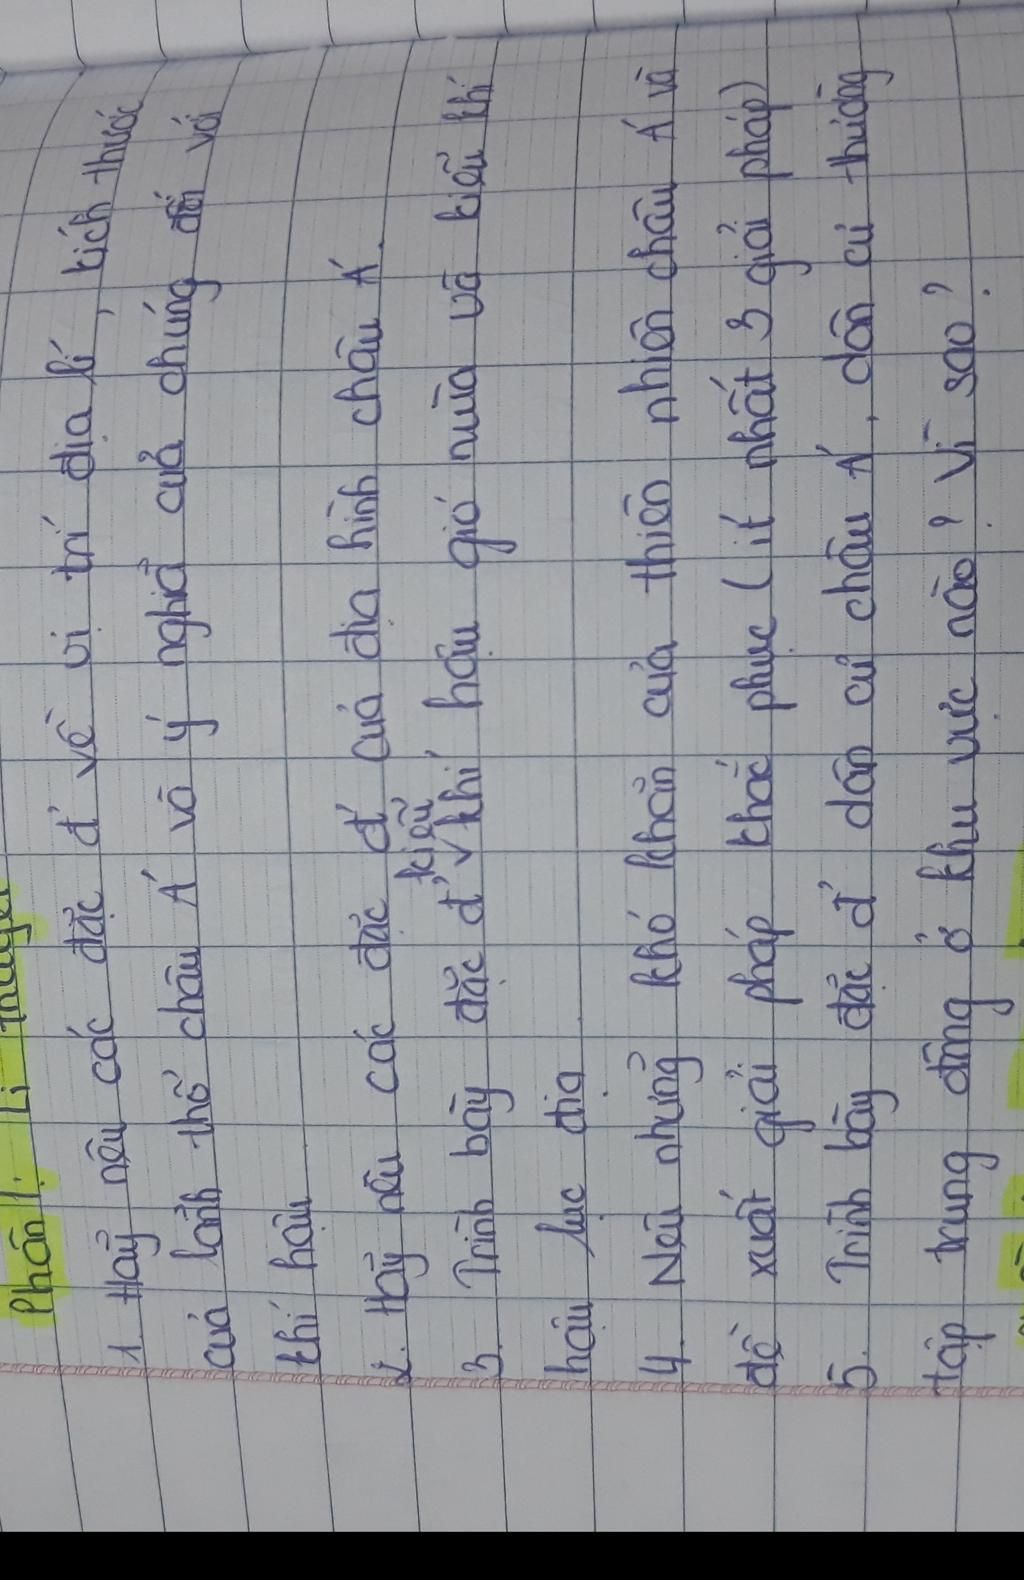 Phần I: Lí thuyết
1. Hãy nêu các đặc đ' về vị trí địa lí, kích thước
của lãnh thổ châu Á và ý nghĩa của chúng đối với
khí hậu
2. Hãy nêu các đặc đ' của địa hình châu Á.
3. Trình bày đặc đ' kiểu khí hậu gió mùa và kiểu khí
hậu lục địa
4. Nêu những khó khăn của thiên nhiên châu Á và
đề xuất giải pháp khắc phục (ít nhất 3 giải pháp)
5. Trình bày đặc đ' dân cư châu Á, dân cư thường
tập trung đông ở khu vực nào? Vì sao?